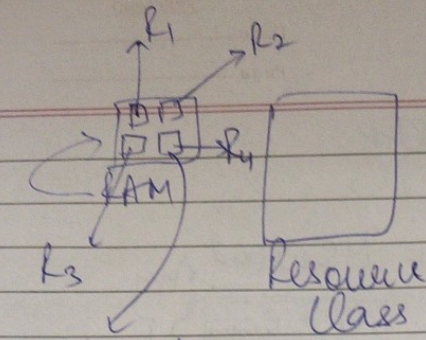 R1
R2
R4
RAM
R3
Resource
Class